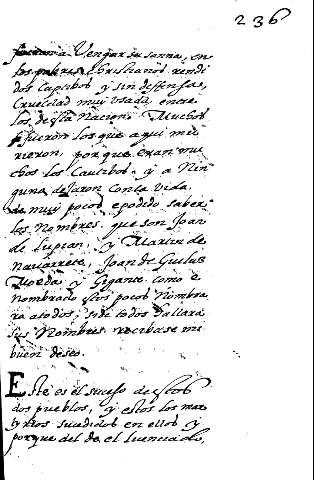 236
fueron a Vengar su sanna, en
los pobres Christianos rendi
dos Captibos y sin deffensa,
Crueldad muy usada entre
los desta Nacion. Muchos
fueron los que aqui mu
rieron, porque eran mu
chos los Cautibos, y a Nin
guno dejaron con la vida
de muy pocos e podido saber
los Nombres, que son Joan
de Lupian, y Martin de
Navarrete, Joan de
Moeda y Gigante como e
Nombrado estos pocos Nombra
ra a todos, si de todos hallara
sus Nombres recibase mi
buen deseo.
Este es el suceso de estos
dos pueblos, y estos los mar
tyrios sucedidos en ellos y
porque del de el licenciado,